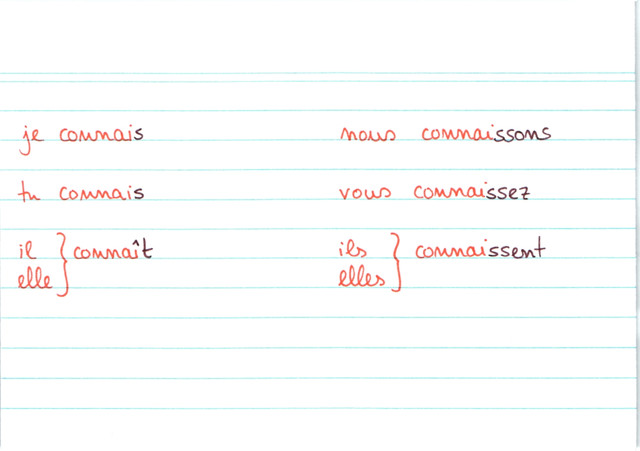 je connais
tu connais
il
elle } connaît
nous connaissons
vous connaissez
ils
elles } connaissent